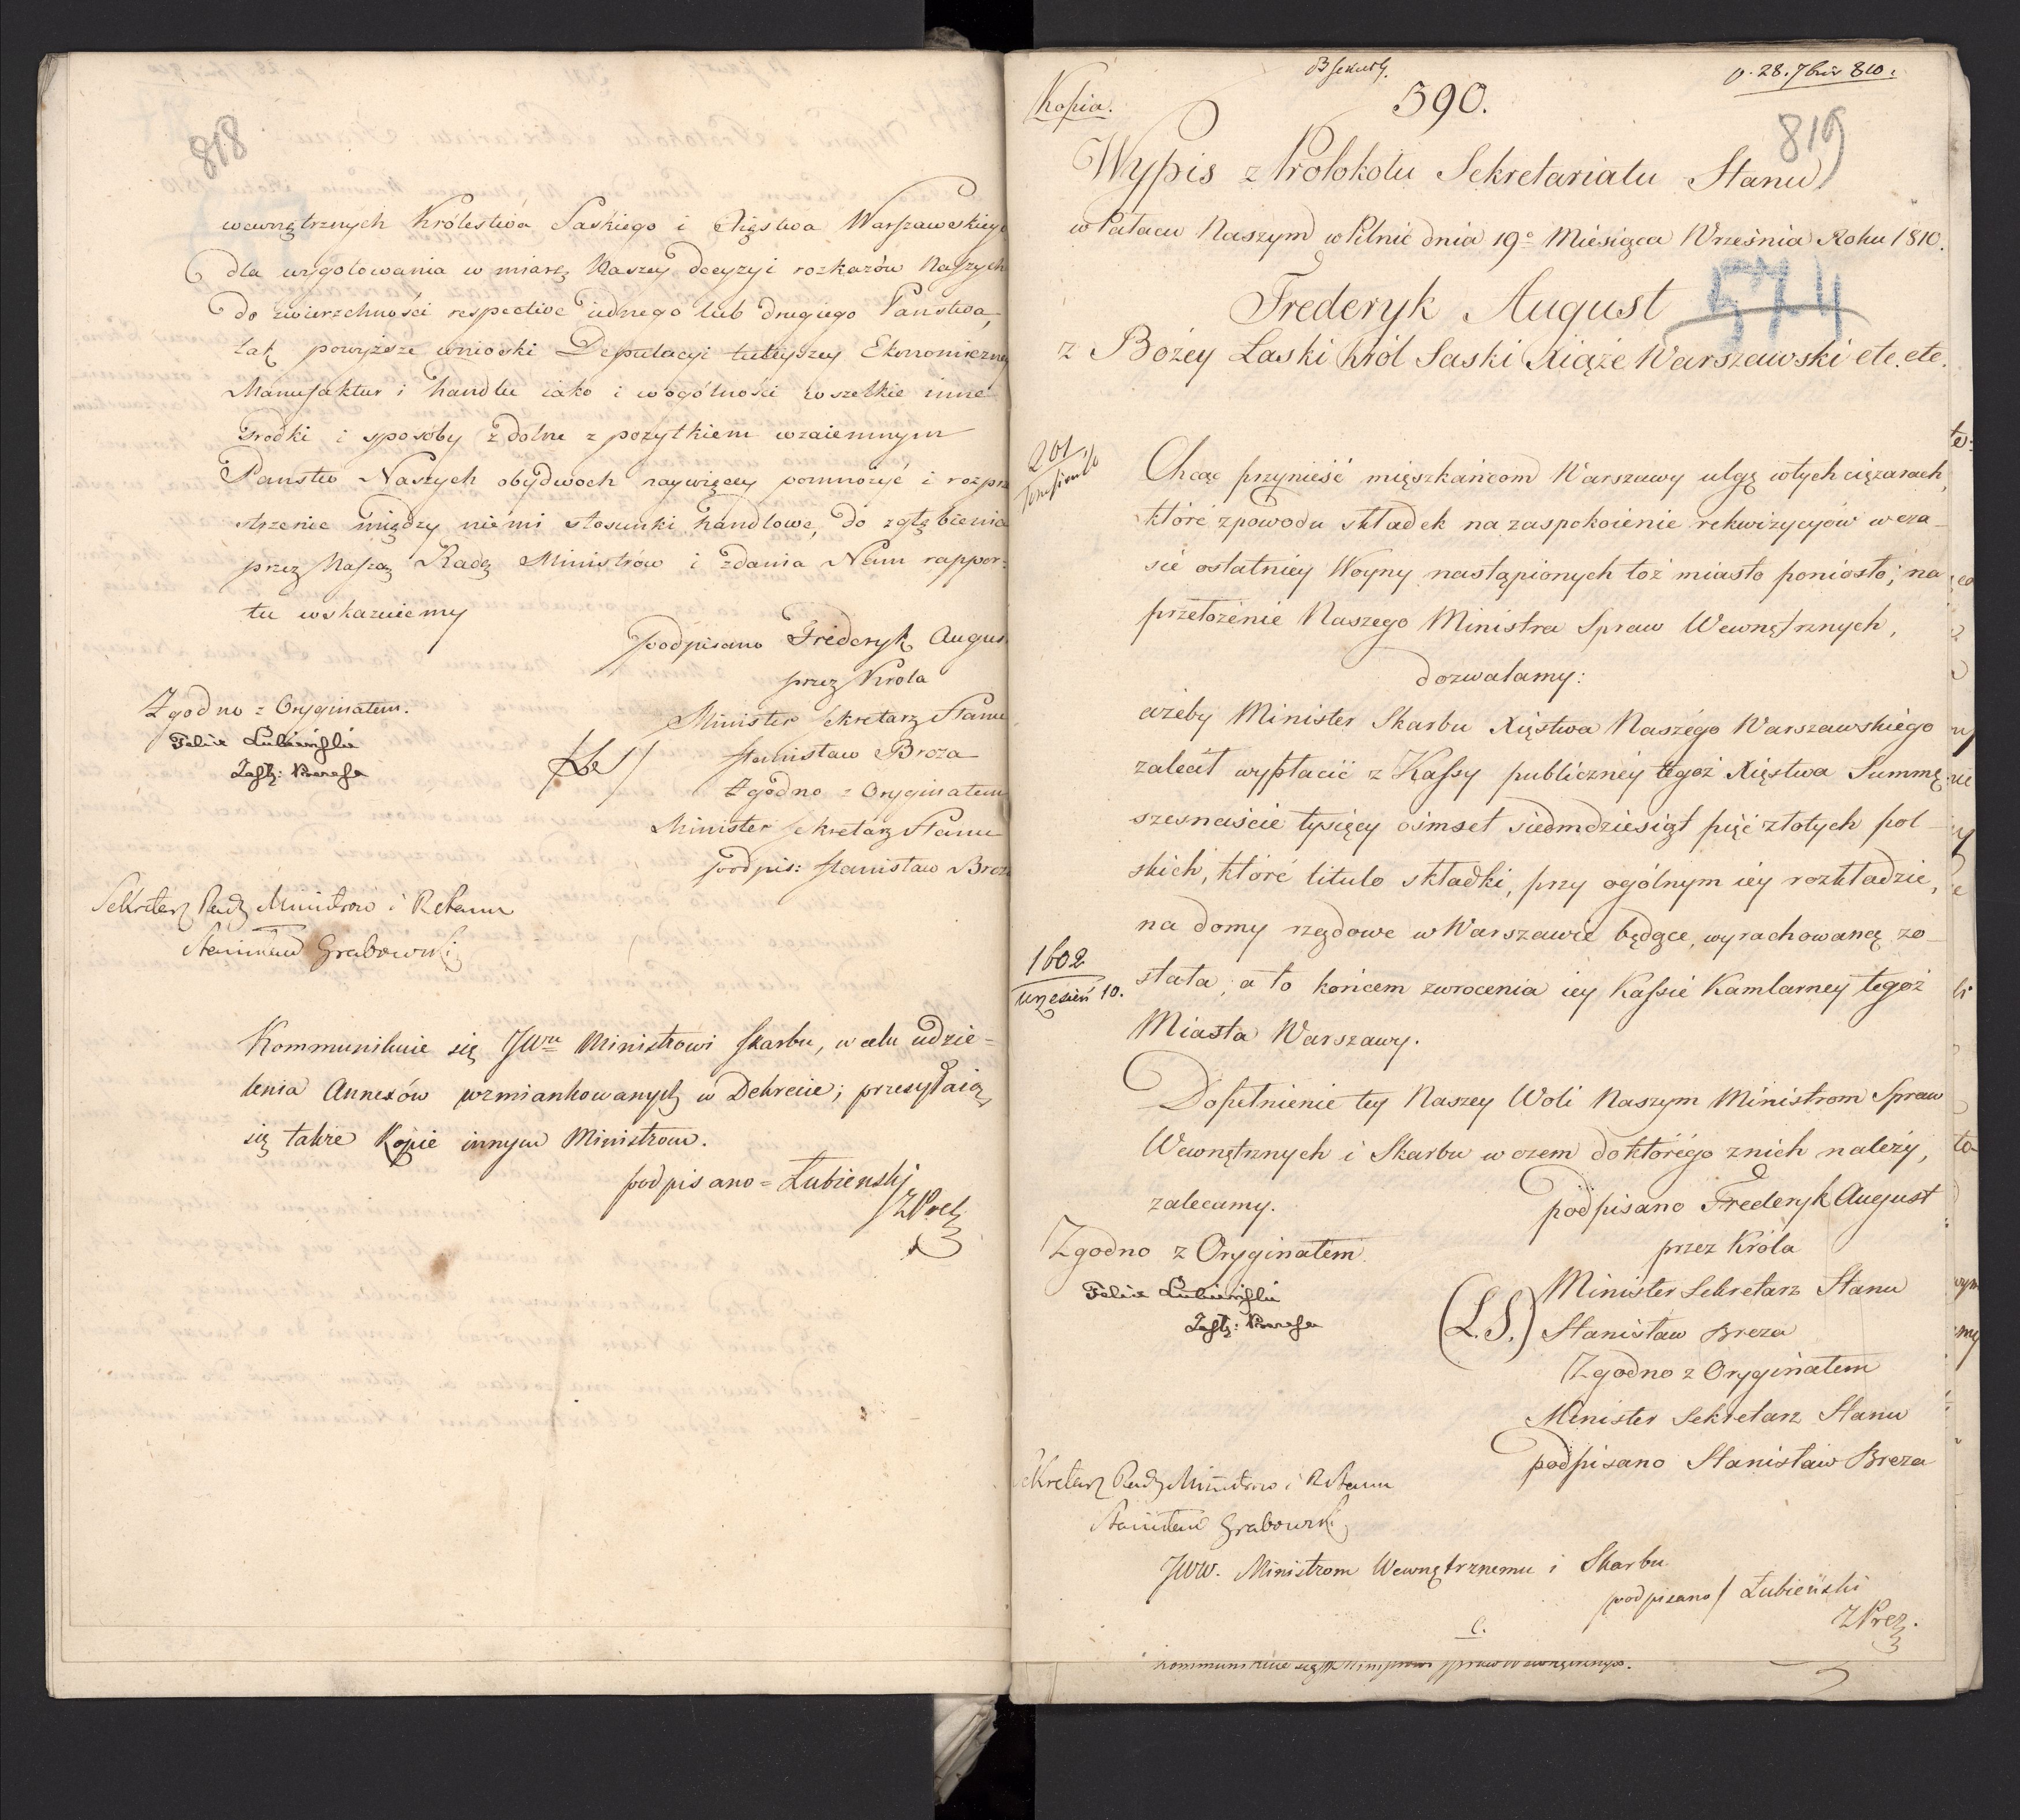 818
wewnętrznych Królestwa Saskiego i Xięstwa Warszawskiego
dla wygotowania w miarę Naszey decyzyi rozkazów Naszych
do zwierzchności respective iednego lub drugiego Państwa,
tak powyższe wnioski Deputacyi tuteyszey Ekonomiczney
Manufaktur i handlu iako i wogólności wszelkie inne
srodki i sposoby zdolne z pożytkiem wzaiemnym
Państw Naszych obydwoch naywięcey pomnożyć i rozprze
strzenić między niemi stosunki handlowe, do zgłębienia
przez Naszą Radę Ministrów i zdania Nam rappor=
tu wskazuiemy
podpisano Frideryk August
przez Krola
Minister Sekretarz Stanu
(LS) Stanisław Breza
Zgodno z Oryginałem
Minister Sekretarz Stanu
podpis: Stanisław Breza
Zgodno z Oryginałem.
Felix Lubieński
Zastę: Prezesa
Sekretarz Rady Ministrów i R Stanu
Stanisław Grabowski
Kommunikuie się JWu Ministrowi Skarbu, w celu udzie=
lenia Annexów wzmiankowanych w Dekrecie; przesyłaią
się także Kopie innym Ministrom.
podpisano = Łubienski
ZPrez
Kopia.
390.
p. 28. 7bris 810.
819
Wypis z Protokołu Sekretariatu Stanu
w Pałacu Naszym w Pilnic dnia 19o Miesiąca Września Roku 1810.
574
Frederyk August
z Bożey Łaski Król Saski Xiąże Warszawski etc. etc.
201
Chcąc przynieść mięszkańcom Warszawy ulgę wtych ciężarach,
które zpowodu składek na zaspokoienie rekwizycyów w cza-
sie ostatniey Woyny nastąpionych toż miasto poniosło; na
przełożenie Naszego Ministra Spraw Wewnętrznych,
dozwalamy:
ażeby Minister Skarbu Xięstwa Naszego Warszawskiego
zalecił wypłacić z Kassy publiczney tegoż Xięstwa Summę
szesnaście tysięcy ośmset siedmdziesiąt pięć złotych pol-
skich, które titulo składki, przy ogólnym iey rozkładzie,
na domy rządowe w Warszawie będące, wyrachowaną zo-
1602
wrzesień 10.
stała, a to końcem zwrocenia iey Kassie Kamlarney tegoż
Miasta Warszawy.
Dopełnienie tey Naszey Woli Naszym Ministrom Spraw
Wewnętrznych i Skarbu w czem doktórego znich należy,
zalecamy.
podpisano Frederyk August
przez Króla
Zgodno z Oryginałem.
Felix Lubieński
Zastę: Prezesa
Minister Sekretarz Stanu
(L.S.) Stanisław Breza
Zgodno z Oryginałem
Minister Sekretarz Stanu
podpisano Stanisław Breza
Sekretarz Rady Ministrow i R Stanu
Stanisław Grabowski
JWW. Ministrom Wewnętrznemu i Skarbu
podpisano / Łubieński
ZPrez.
C.
Kommunikuie się Ministrowi spraw Wewnętrznych.